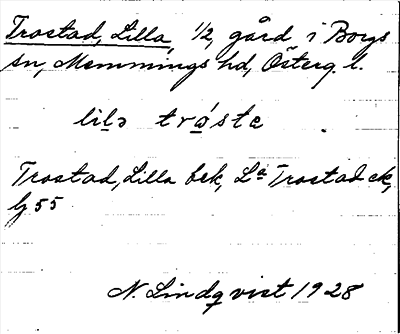 Trostad, Lilla, 1/2, gård i Borgs
sn, Memmings hd, Österg. l.
lilə trǿste
Trostad, Lilla bek, La Trostad ek,
bj 55
N. Lindqvist 1928